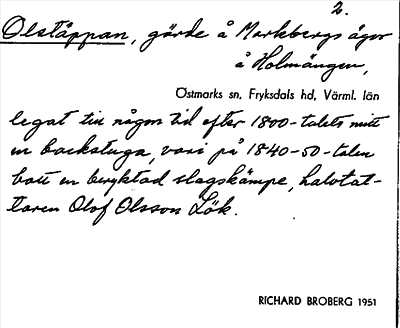 2.
Olstäppan, gärde å Markbergs ägor
å Holmängen,
Östmarks sn, Fryksdals hd, Värml. län
legat till någon tid efter 1800-talets mitt
en backstuga, vari på 1840-50-talen
bott en beryktad slagskämpe, halvtat-
taren Olof Olsson Lök.
RICHARD BROBERG 1951